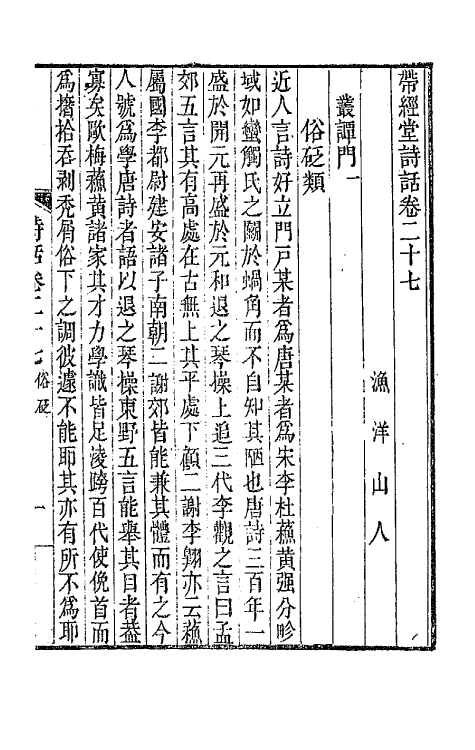 帶經堂詩話卷二十七
漁洋山人
叢譚門一
俗砭類
近人言詩好立門戶某者爲唐某者爲宋李杜蘇黃强分畛
域如蠻觸氏之鬭於蝸角而不自知其陋也唐詩三百年一
盛於開元再盛於元和退之琴操上追三代李觀之言曰孟
郊五言其有高處在古無上其平處下顧二謝李翺亦云蘇
屬國李都尉建安諸子南朝二謝郊皆能兼其體而有之今
人號爲學唐詩者語以退之琴操東野五言能舉其目者葢
寡矣歐梅蘇黃諸家其才力學識皆足淩跨百代使俛首而
爲撦拾吞剥禿屑俗下之調彼遽不能耶其亦有所不爲耶
詩話卷二十七 俗砭 一